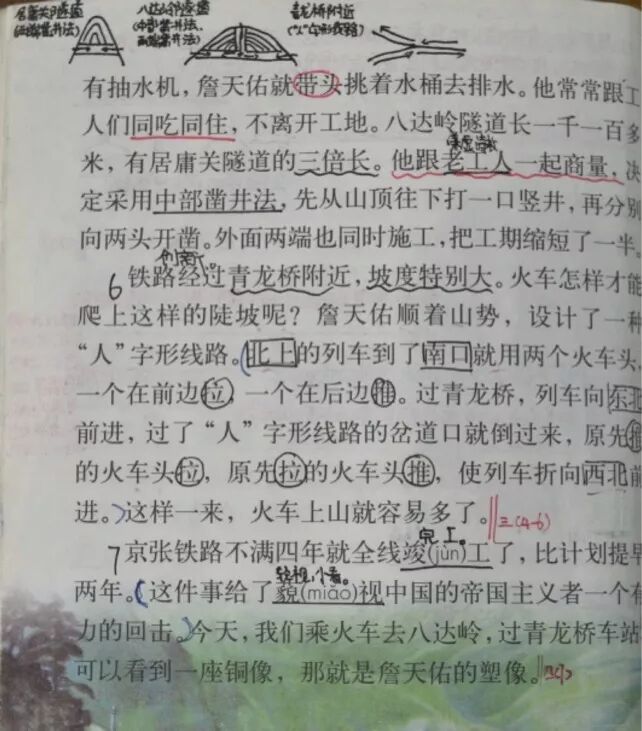 居庸关隧道 八达岭隧道 青龙桥附近
(两端凿井法) (中部凿井法、 ("人"字形线路)
两端凿井法)
有抽水机，詹天佑就带头挑着水桶去排水。他常常跟工
人们同吃同住，不离开工地。八达岭隧道长一千一百多
米，有居庸关隧道的三倍长。他跟老工人一起商量，决
定采用中部凿井法，先从山顶往下打一口竖井，再分别
向两头开凿。外面两端也同时施工，把工期缩短了一半。
创新
6 铁路经过青龙桥附近，坡度特别大。火车怎样才能
爬上这样的陡坡呢？詹天佑顺着山势，设计了一种
“人”字形线路。北上的列车到了南口就用两个火车头，
一个在前边拉，一个在后边推。过青龙桥，列车向东北
前进，过了“人”字形线路的岔道口就倒过来，原先推
的火车头拉，原先拉的火车头推，使列车折向西北前
进。这样一来，火车上山就容易多了。 三(4-6)
完工。
7 京张铁路不满四年就全线竣(jùn)工了，比计划提早
轻视,小看。
两年。这件事给了藐(miǎo)视中国的帝国主义者一个有
力的回击。今天，我们乘火车去八达岭，过青龙桥车站
可以看到一座铜像，那就是詹天佑的塑像。